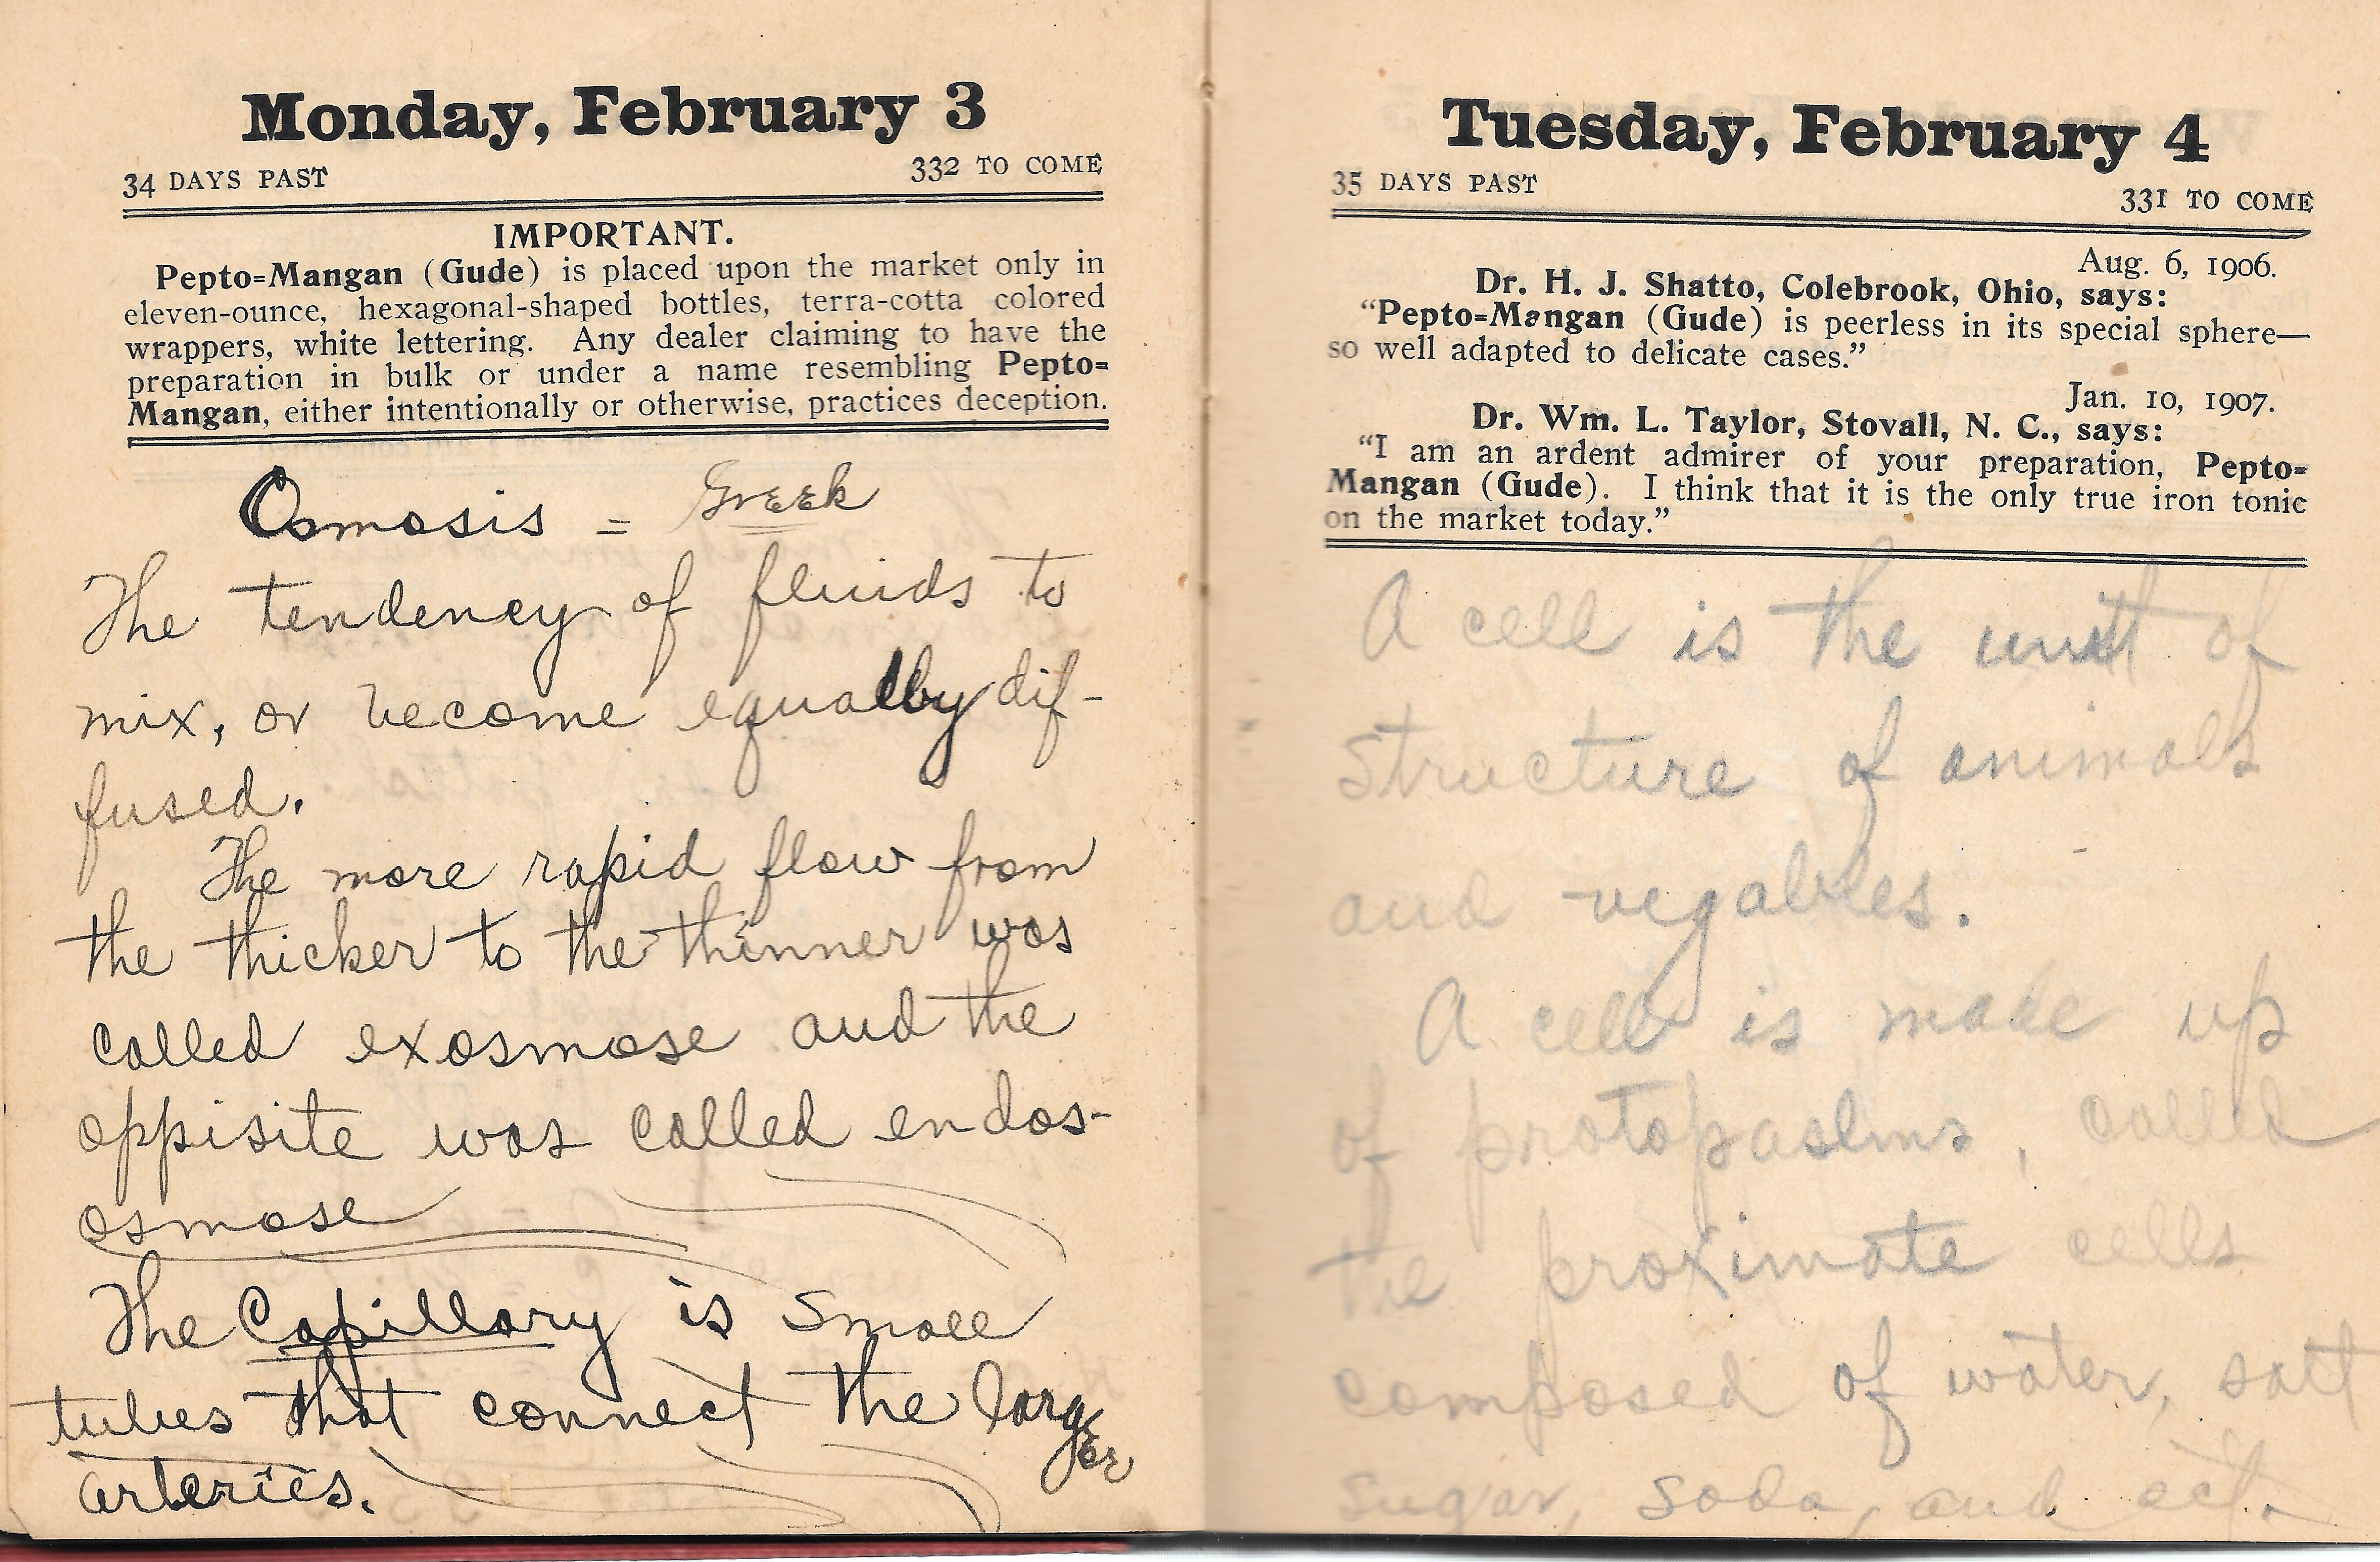 Monday, February 3
34 DAYS PAST 332 TO COME
IMPORTANT.
Pepto=Mangan (Gude) is placed upon the market only in
eleven-ounce, hexagonal-shaped bottles, terra-cotta colored
wrappers, white lettering. Any dealer claiming to have the
preparation in bulk or under a name resembling Pepto=
Mangan, either intentionally or otherwise, practices deception.
Osmosis = Greek
The tendency of fluids to
mix, or become equally dif-
fused.
The more rapid flow from
the thicker to the thinner was
called exosmose and the
oppisite was called endos-
osmose
The Capillary is small
tubes that connect the larger
arteries.
Tuesday, February 4
35 DAYS PAST 331 TO COME
Aug. 6, 1906.
Dr. H. J. Shatto, Colebrook, Ohio, says:
“Pepto=Mangan (Gude) is peerless in its special sphere—
so well adapted to delicate cases.”
Jan. 10, 1907.
Dr. Wm. L. Taylor, Stovall, N. C., says:
“I am an ardent admirer of your preparation, Pepto=
Mangan (Gude). I think that it is the only true iron tonic
on the market today.”
A cell is the unit of
structure of animals
and vegables.
A cell is made up
of protopaslms, called
the proximate cells
composed of water, salt
sugar, soda, and ect.